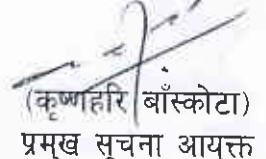 (कृष्णहरि बाँस्कोटा)
प्रमुख सूचना आयक्त